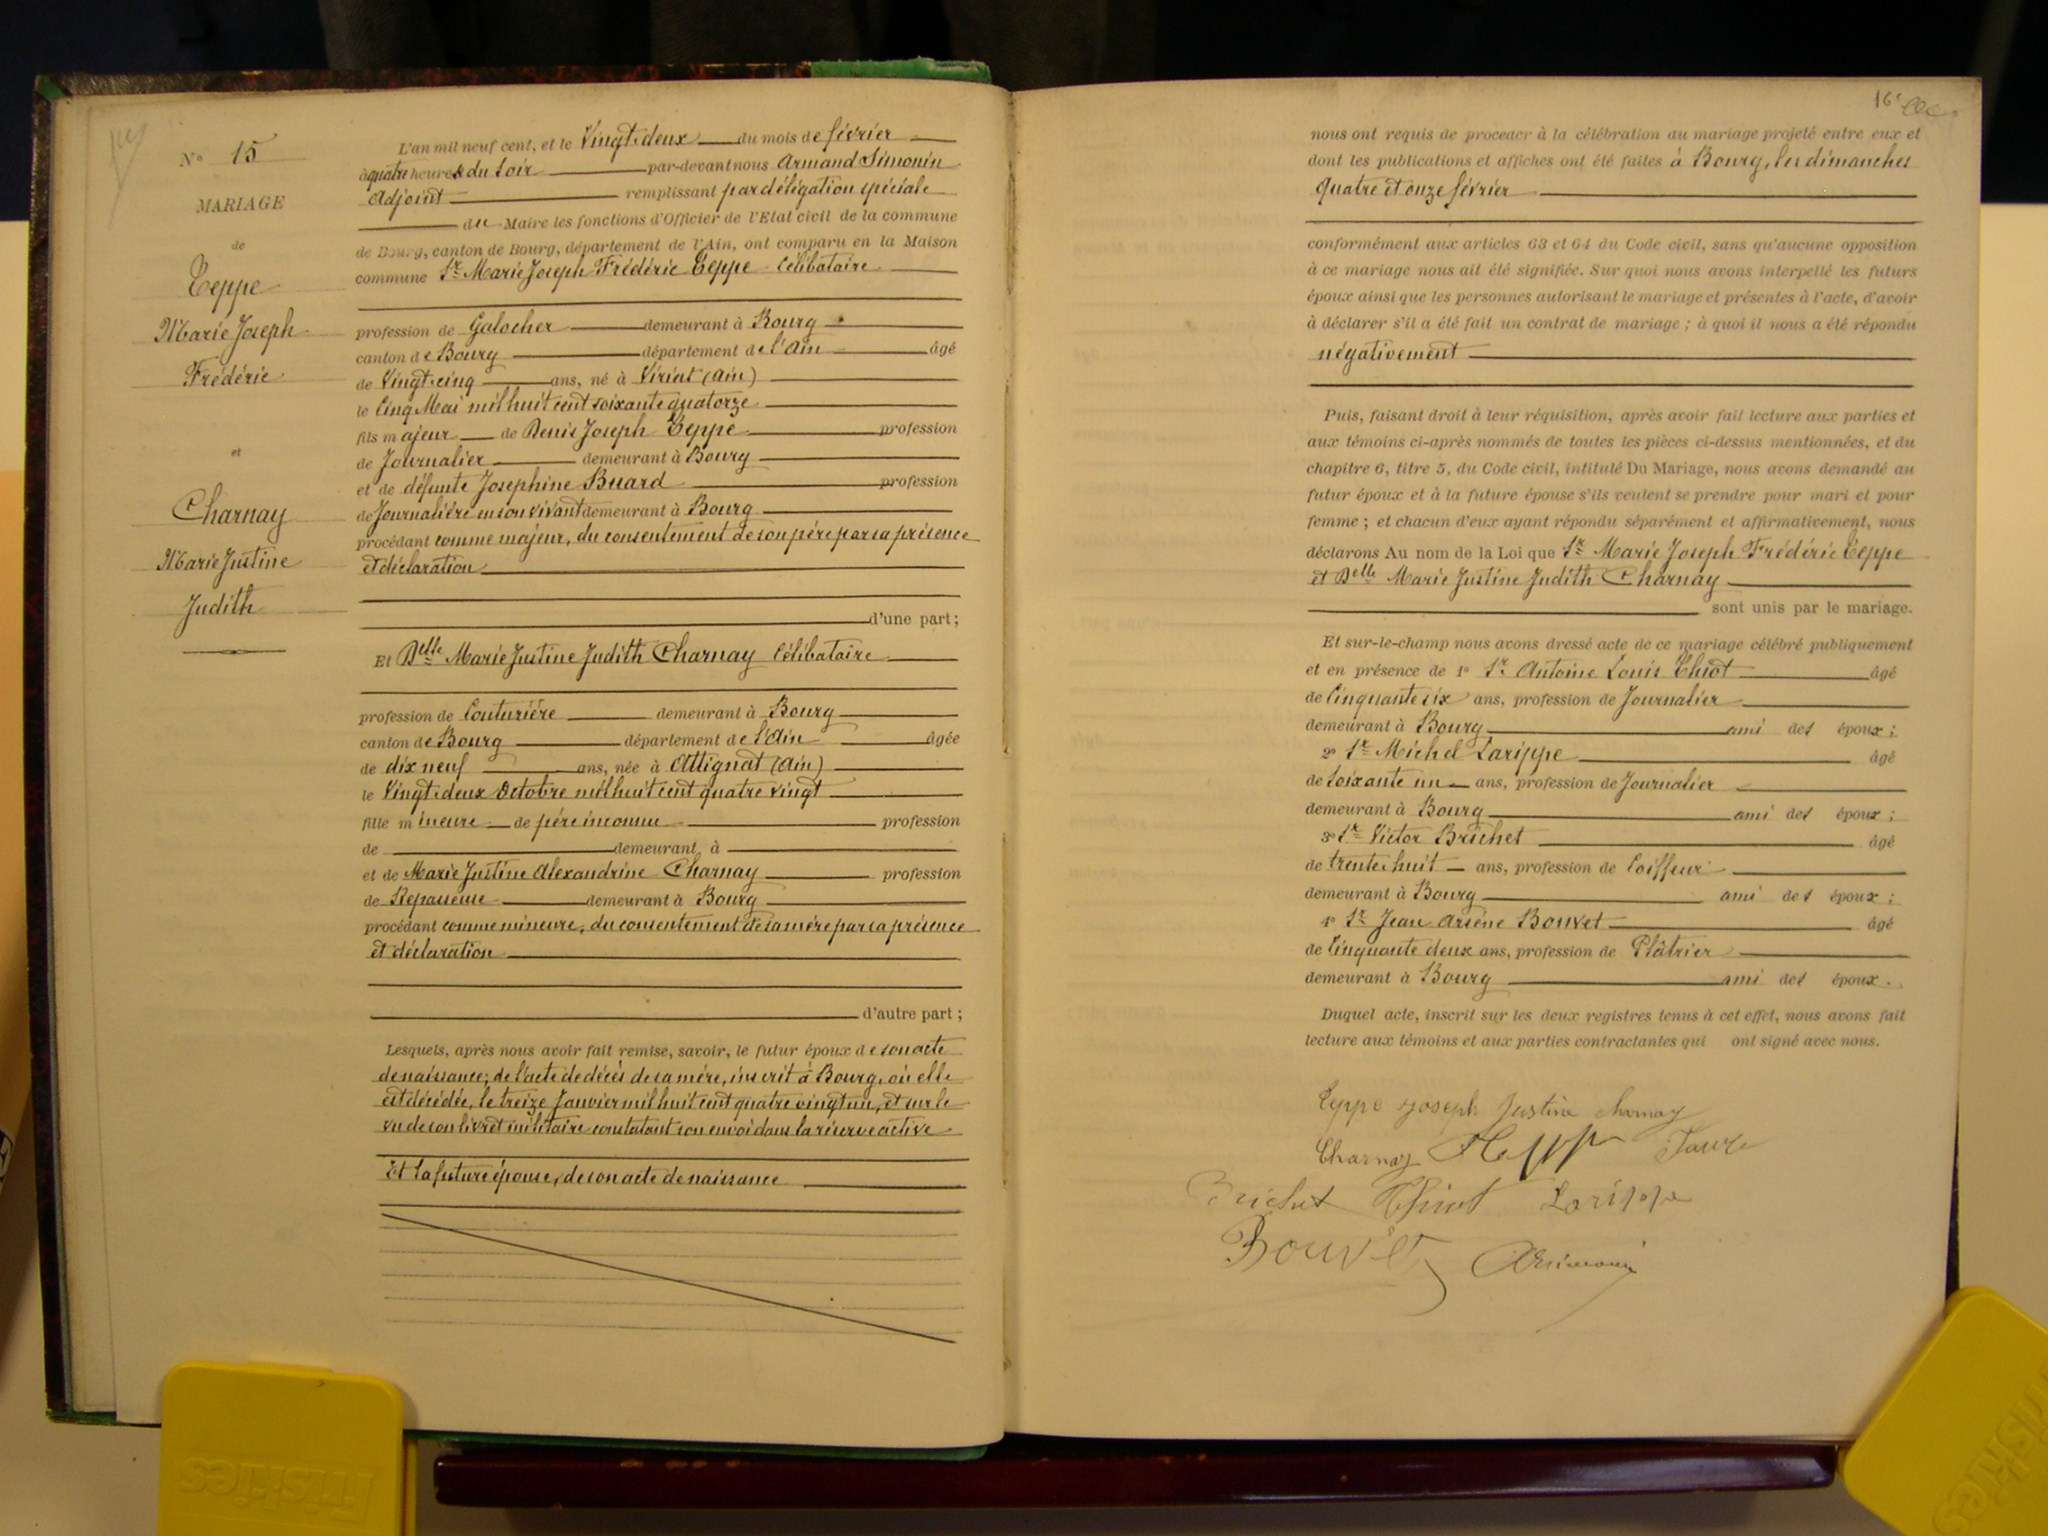 N° 15
MARIAGE
de
Teppe
Marie Joseph
Frédéric
et
Charnay
Marie Justine
Judith
L'an mil neuf cent, et le Vingt-deux du mois de février
à quatre heures du soir par-devant nous Armand Simonin
Adjoint remplissant par délégation spéciale
du Maire les fonctions d'Officier de l'Etat civil de la commune
de Bourg, canton de Bourg, département de l'Ain, ont comparu en la Maison
commune Sr Marie Joseph Frédéric Teppe célibataire
profession de Galocher demeurant à Bourg
canton de Bourg département de l'Ain âgé
de Vingt-cinq ans, né à Viriat (Ain)
le Cinq Mai mil huit cent soixante quatorze
fils majeur de Denis Joseph Teppe profession
de Journalier demeurant à Bourg
et de défunte Josephine Buard profession
de Journalière en son vivant demeurant à Bourg
procédant comme majeur, du consentement de son père par sa présence
et déclaration
d'une part;
Et Delle Marie Justine Judith Charnay Célibataire
profession de Couturière demeurant à Bourg
canton de Bourg département de l'Ain âgée
de dix neuf ans, née à Attignat (Ain)
le Vingt-deux Octobre mil huit cent quatre vingt
fille mineure de père inconnu profession
de demeurant à
et de Marie Justine Alexandrine Charnay profession
de Repasseuse demeurant à Bourg
procédant comme mineure, du consentement de sa mère par sa présence
et déclaration
d'autre part;
Lesquels, après nous avoir fait remise, savoir, le futur époux de son acte
de naissance; de l'acte de décès de sa mère, inscrit à Bourg, où elle
est décédée, le treize Janvier mil huit cent quatre vingt un, et sur le
vu de son livret militaire constatant son envoi dans la réserve active
Et la future épouse, de son acte de naissance
16
nous ont requis de procéder à la célébration du mariage projeté entre eux et
dont les publications et affiches ont été faites à Bourg, les dimanches
quatre et onze février
conformément aux articles 63 et 64 du Code civil, sans qu'aucune opposition
à ce mariage nous ait été signifiée. Sur quoi nous avons interpellé les futurs
époux ainsi que les personnes autorisant le mariage et présentes à l'acte, d'avoir
à déclarer s'il a été fait un contrat de mariage; à quoi il nous a été répondu
négativement
Puis, faisant droit à leur réquisition, après avoir fait lecture aux parties et
aux témoins ci-après nommés de toutes les pièces ci-dessus mentionnées, et du
chapitre 6, titre 5, du Code civil, intitulé Du Mariage, nous avons demandé au
futur époux et à la future épouse s'ils veulent se prendre pour mari et pour
femme; et chacun d'eux ayant répondu séparément et affirmativement, nous
déclarons Au nom de la Loi que Sr Marie Joseph Frédéric Teppe
et Delle Marie Justine Judith Charnay
sont unis par le mariage.
Et sur-le-champ nous avons dressé acte de ce mariage célébré publiquement
et en présence de 1° Sr Antoine Louis Thiot âgé
de Cinquante six ans, profession de Journalier
demeurant à Bourg ami des époux;
2° Sr Michel Larippe âgé
de soixante un ans, profession de Journalier
demeurant à Bourg ami des époux;
3° Sr Victor Brichet âgé
de trente huit ans, profession de Coiffeur
demeurant à Bourg ami des époux;
4° Sr Jean Arsène Bouvet âgé
de Cinquante deux ans, profession de Plâtrier
demeurant à Bourg ami des époux.
Duquel acte, inscrit sur les deux registres tenus à cet effet, nous avons fait
lecture aux témoins et aux parties contractantes qui ont signé avec nous.
Teppe Joseph Justine Charnay
Charnay Teppe
Brichet Thiot Larippe
Bouvet ASimonin